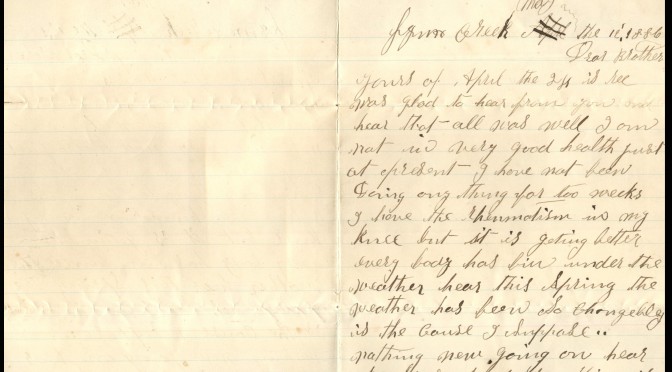 (May)
Lynn Creek the 11, 1886
Dear Brother
yours of April the 24 is rec
was glad to hear from you and
hear that all was well I am
not in very good health just
at present I have not been
Doing any thing for too weeks
I have the Rheumotism in my
Knee but it is geting better
every body has bin under the
weather hear this Spring the
weather has been So Changebley
is the Cause I Suppose..
nothing new going on hear